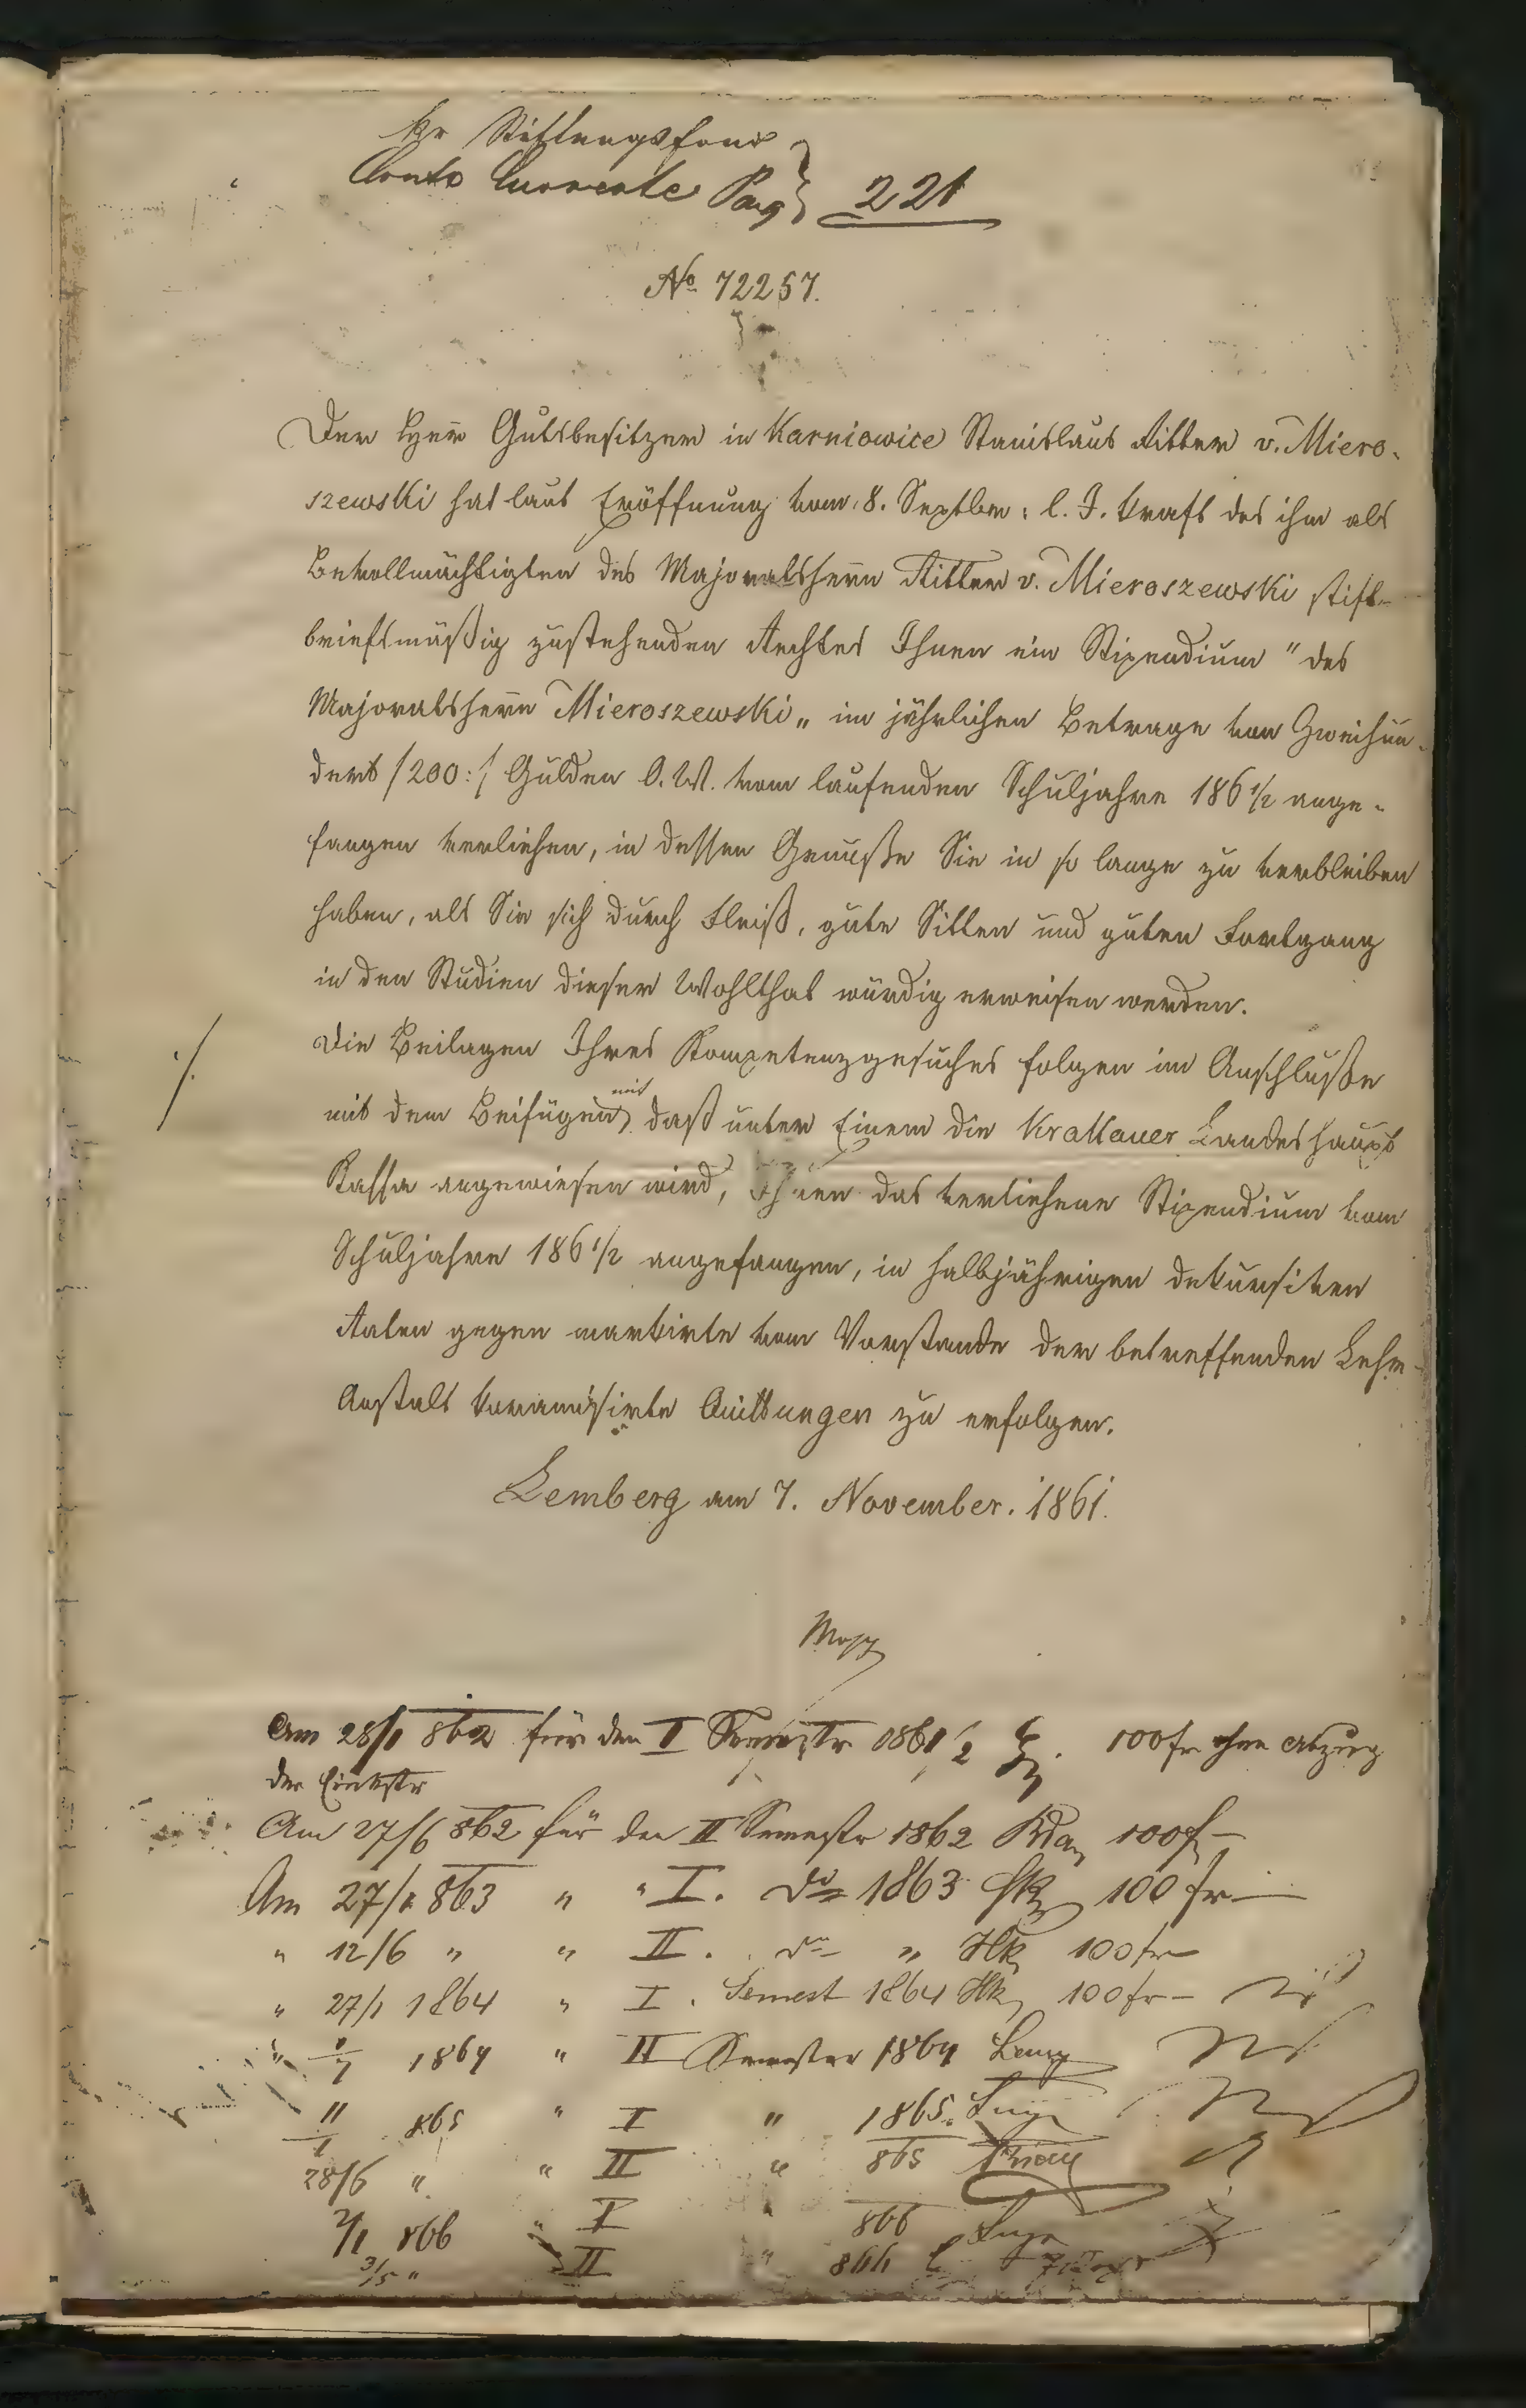 Kr Stiftungsfond
Conto Currente Pag 221
No 72257.
Der Herr Gutsbesitzer in Karniowice Stanislaus Ritter v. Miero-
szewski hat laut Eröffnung vom 8. Septber: l. J. kraft des ihm als
Bevollmächtigten des Majoratsherrn Ritter v. Mieroszewski stift-
briefsmäßig zustehenden Rechtes Ihnen ein Stipendium "des
Majoratsherrn Mieroszewski„ im jährlichen Betrage von Zweihun-
dert /200:/ Gulden O. W. vom laufenden Schuljahre 186 1/2 ange-
fangen verliehen, in dessen Genuße Sie in so lange zu verbleiben
haben, als Sie sich durch Fleiß, gute Sitten und guten Fortgang
in den Studien dieser Wohlthat würdig erweisen werden.
Die Beilagen Ihres Kompetenzgesuches folgen im Anschluße
mit dem Beifügen mit daß unter Einem die Krakauer Landeshaupt
Kassa angewiesen wird, Ihnen das verliehene Stipendium vom
Schuljahre 186 1/2 angefangen, in halbjährigen dekursiven
Raten gegen vom Vorstande der betreffenden Lehr-
Anstalt koramisirte Quittungen zu erfolgen.
Lemberg am 7. November. 1861.
Am 28/1 862 für den I Semestr 1861/2 100 fr ohne Abzug
der
Am 27/6 862 für den II Semestr 1862 100 f –
Am 27/1 863 „ „ I. do 1863 100 fr —
„ 12/6 „ „ II. do „ Hk 100 fr
„ 27/1 1864 „ I. Semest 1864 Hk 100 fr –
„ 1/7 1864 „ II Semester 1864
11/1 865 „ I „ 1865
28/6 „ „ II „ 865
2/1 866 „ I „ 866
3/5 „ „ II „ 866